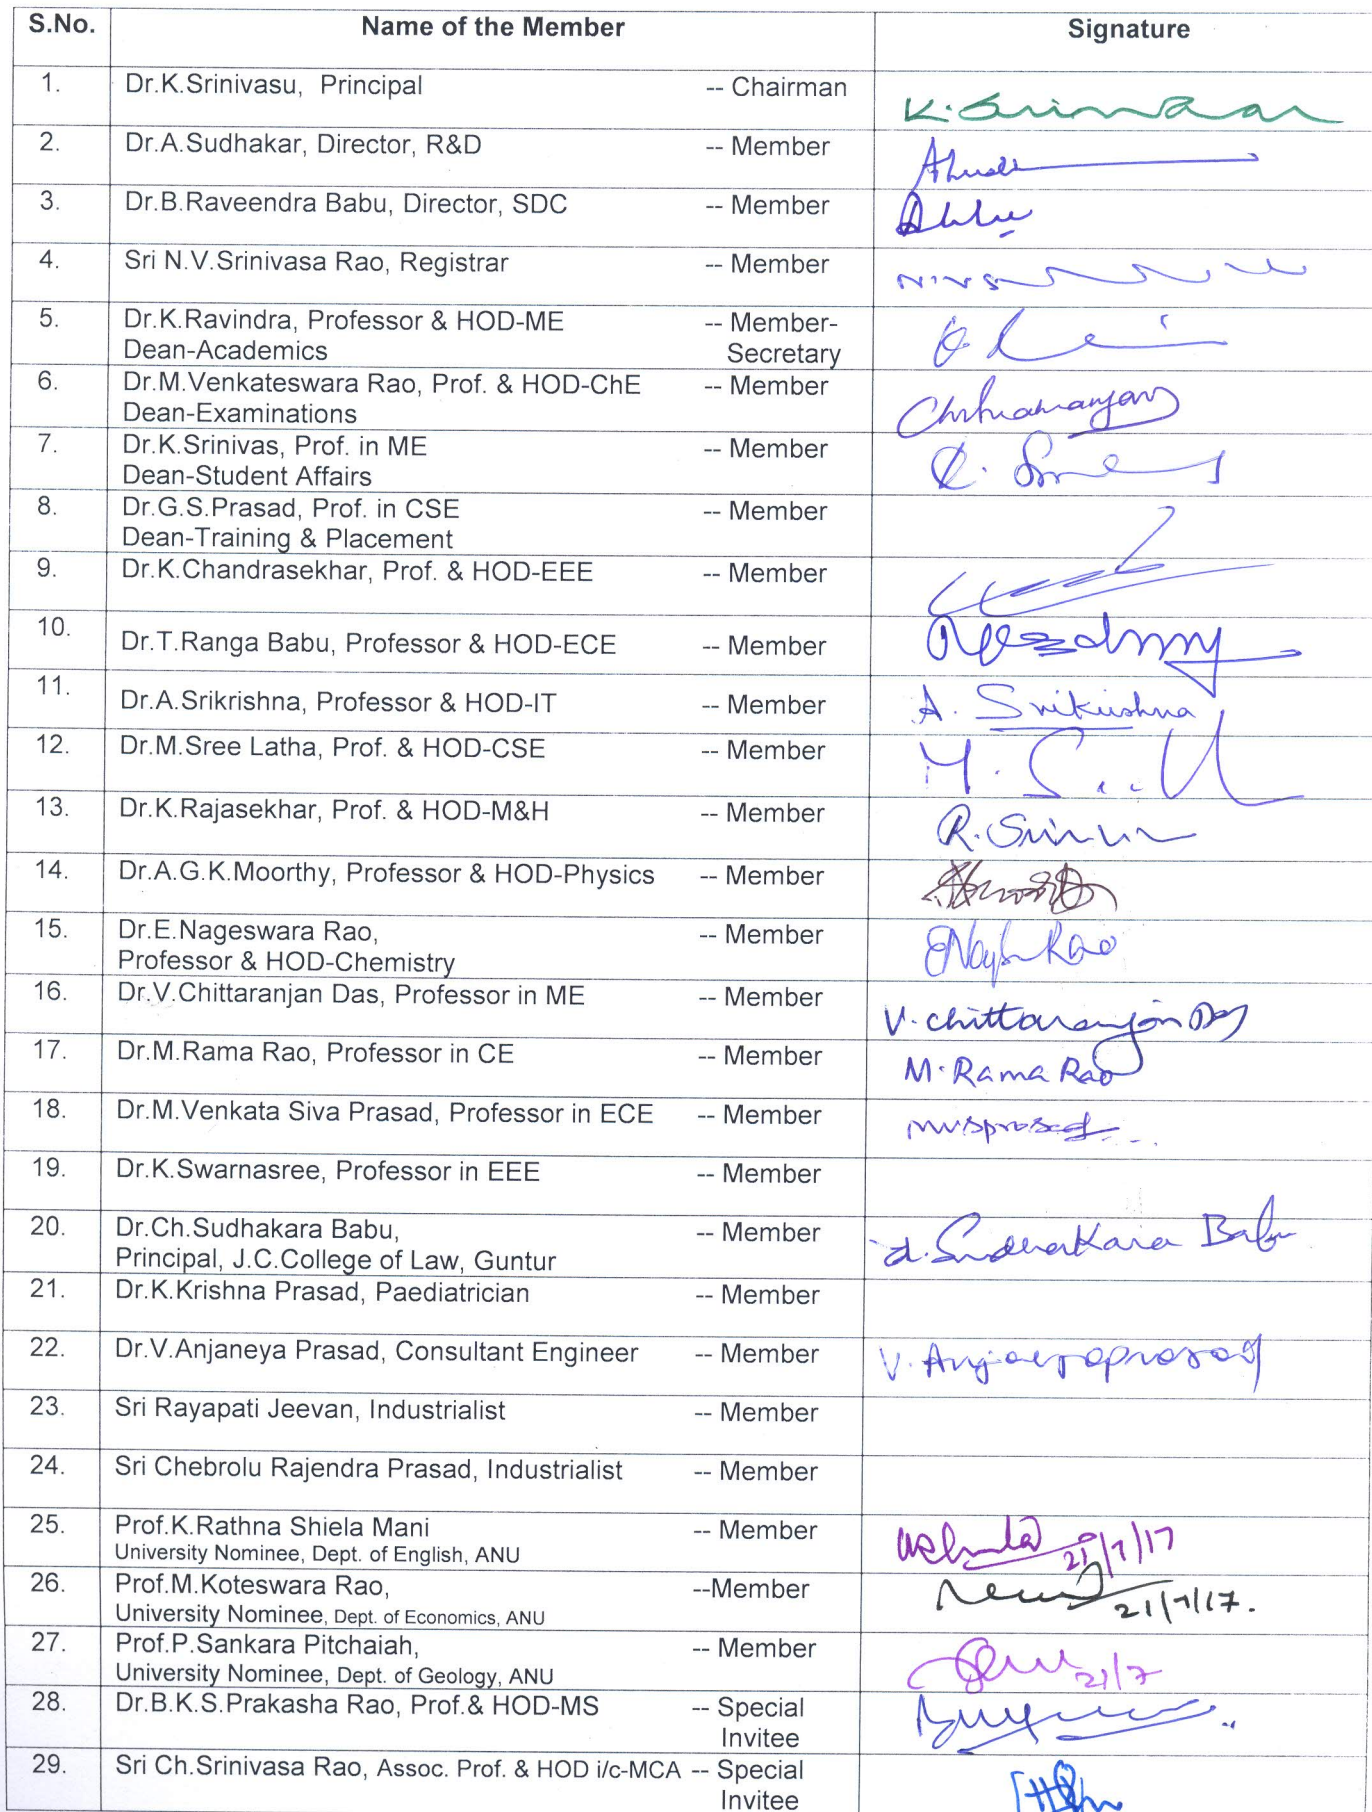 S.No. Name of the Member Signature
1. Dr.K.Srinivasu, Principal -- Chairman
2. Dr.A.Sudhakar, Director, R&D -- Member
3. Dr.B.Raveendra Babu, Director, SDC -- Member
4. Sri N.V.Srinivasa Rao, Registrar -- Member
5. Dr.K.Ravindra, Professor & HOD-ME -- Member-
Dean-Academics Secretary
6. Dr.M.Venkateswara Rao, Prof. & HOD-ChE -- Member
Dean-Examinations
7. Dr.K.Srinivas, Prof. in ME -- Member
Dean-Student Affairs
8. Dr.G.S.Prasad, Prof. in CSE -- Member
Dean-Training & Placement
9. Dr.K.Chandrasekhar, Prof. & HOD-EEE -- Member
10. Dr.T.Ranga Babu, Professor & HOD-ECE -- Member
11. Dr.A.Srikrishna, Professor & HOD-IT -- Member A. Srikrishna
12. Dr.M.Sree Latha, Prof. & HOD-CSE -- Member
13. Dr.K.Rajasekhar, Prof. & HOD-M&H -- Member
14. Dr.A.G.K.Moorthy, Professor & HOD-Physics -- Member
15. Dr.E.Nageswara Rao, -- Member
Professor & HOD-Chemistry
16. Dr.V.Chittaranjan Das, Professor in ME -- Member V. Chittaranjan Das
17. Dr.M.Rama Rao, Professor in CE -- Member M. Rama Rao
18. Dr.M.Venkata Siva Prasad, Professor in ECE -- Member mvsprasad
19. Dr.K.Swarnasree, Professor in EEE -- Member
20. Dr.Ch.Sudhakara Babu, -- Member Sudhakara Babu
Principal, J.C.College of Law, Guntur
21. Dr.K.Krishna Prasad, Paediatrician -- Member
22. Dr.V.Anjaneya Prasad, Consultant Engineer -- Member V. Anjaneyaprasad
23. Sri Rayapati Jeevan, Industrialist -- Member
24. Sri Chebrolu Rajendra Prasad, Industrialist -- Member
25. Prof.K.Rathna Shiela Mani -- Member 21/7/17
University Nominee, Dept. of English, ANU
26. Prof.M.Koteswara Rao, --Member 21/7/17.
University Nominee, Dept. of Economics, ANU
27. Prof.P.Sankara Pitchaiah, -- Member 21/7
University Nominee, Dept. of Geology, ANU
28. Dr.B.K.S.Prakasha Rao, Prof.& HOD-MS -- Special
Invitee
29. Sri Ch.Srinivasa Rao, Assoc. Prof. & HOD i/c-MCA -- Special
Invitee